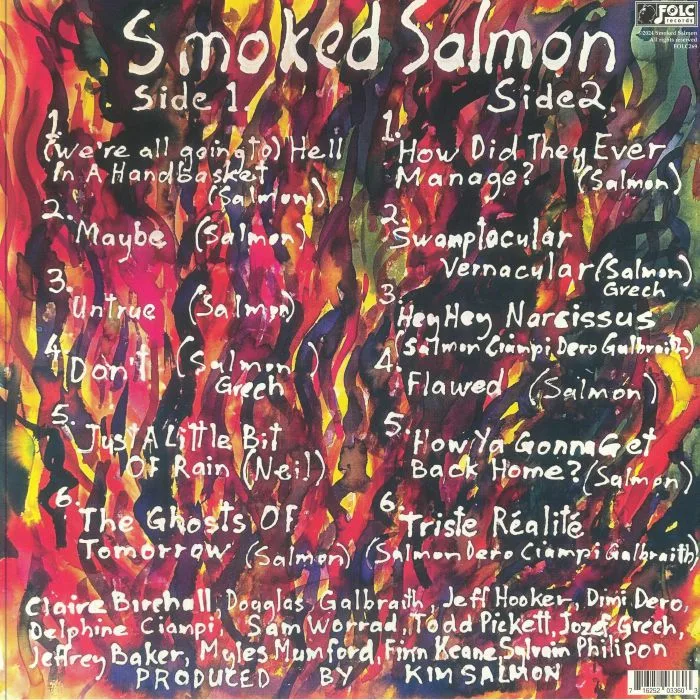 Smoked Salmon
FOLC
records
©2024 Smoked Salmon
All rights reserved
FOLC269
Side 1.
1. (We're all going to) Hell
In A Handbasket
(Salmon)
2. Maybe (Salmon)
3. Untrue (Salmon)
4. Don't (Salmon
Grech)
5. Just A Little Bit
Of Rain (Neil)
6. The Ghosts Of
Tomorrow (Salmon)
Side 2.
1. How Did They Ever
Manage? (Salmon)
2. Swamptacular
Vernacular (Salmon)
Grech
3. Hey Hey Narcissus
(Salmon Ciampi Dero Galbraith)
4. Flawed (Salmon)
5. How Ya Gonna Get
Back Home? (Salmon)
6. Triste Réalité
(Salmon Dero Ciampi Galbraith)
Claire Birchall, Douglas Galbraith, Jeff Hooker, Dimi Dero,
Delphine Ciampi, Sam Worrad, Todd Pickett, Jozef Grech,
Jeffrey Baker, Myles Mumford, Finn Keane, Sylvain Philipon
PRODUCED BY KIM SALMON
7 16252 03360